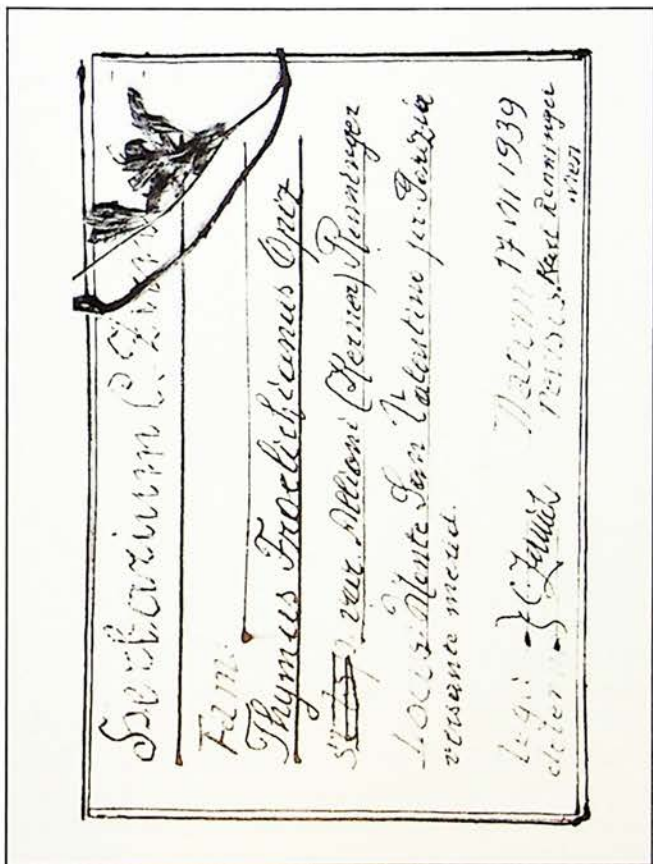 Herbarium C. Zirnich
Fam:
Thymus Froelichianus Opiz
var. Allioni (Kerner) Ronniger
Locus: Monte San Valentino pr. Gorizia
versante merid.
Legit C. Zirnich Datum 17 VII 1939
determ. Revis. Karl Ronniger
Wien